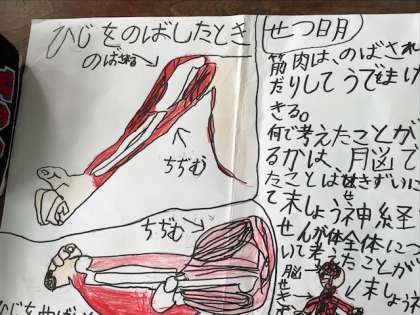 ひじをのばしたとき
のばされる
ちぢむ
ちぢむ
ひじをまげ
せつ日月
筋肉は、のばされ
だりしてうでをまげ
きる。
何で考えたことが
るかは、月脳で
たことはせきずいに
て末しょう神経
せんが体全体につ
いて考えたことが
脳
せきず
末しょう